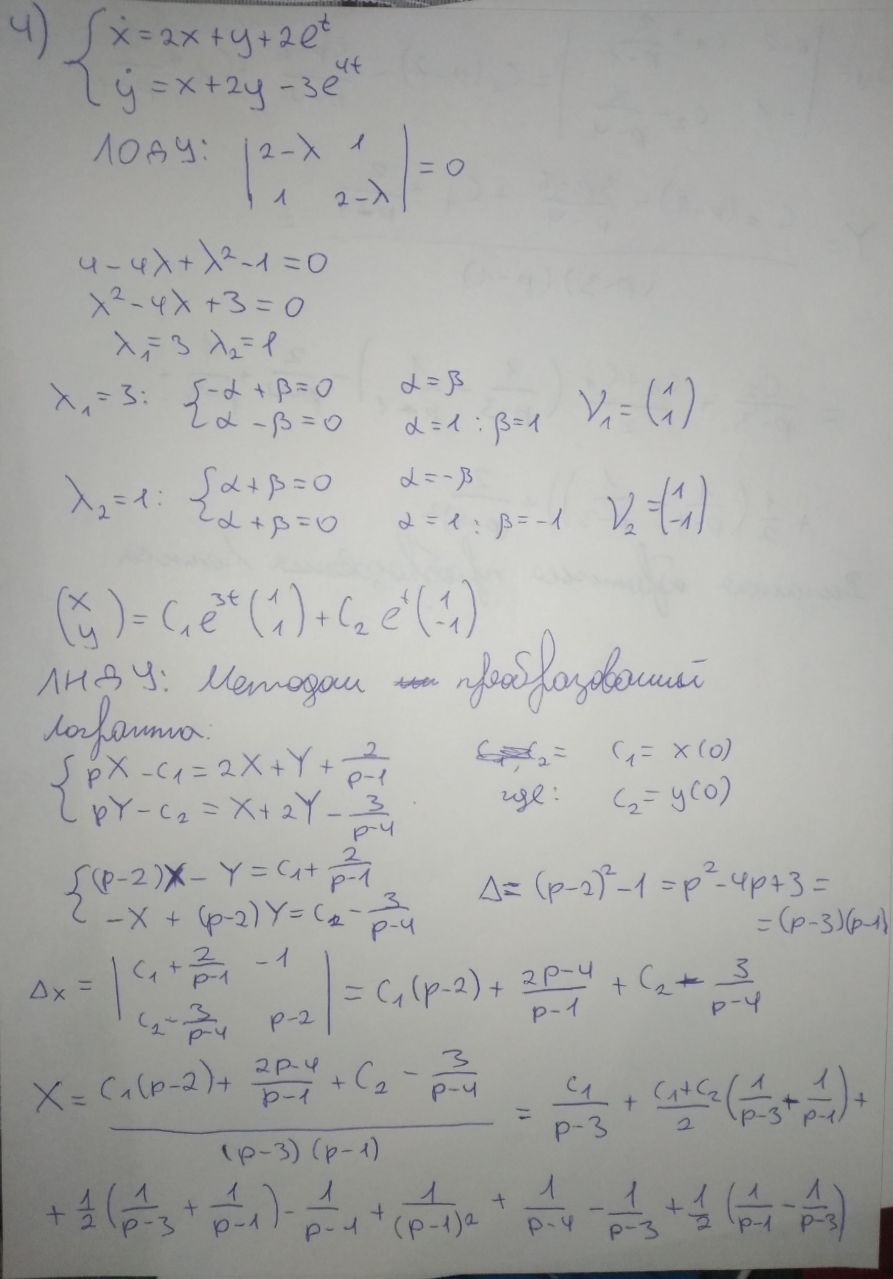 4) { ẋ = 2x + y + 2e^t
ẏ = x + 2y - 3e^{4t}
ЛОДУ: | 2-λ 1 | = 0
1 2-λ
4 - 4λ + λ² - 1 = 0
λ² - 4λ + 3 = 0
λ₁ = 3 λ₂ = 1
λ₁ = 3: { -α + β = 0 α = β
α - β = 0 α = 1 : β = 1 V₁ = (1 1)
λ₂ = 1: { α + β = 0 α = -β
α + β = 0 α = 1 : β = -1 V₂ = (1 -1)
(x y) = C₁e^{3t} (1 1) + C₂e^t (1 -1)
ЛНДУ: Методом преобразований
{ pX - C₁ = 2X + Y + 2/(p-1) C₁ = x(0)
pY - C₂ = X + 2Y - 3/(p-4) где: C₂ = y(0)
{ (p-2)X - Y = C₁ + 2/(p-1)
-X + (p-2)Y = C₂ - 3/(p-4)
Δ = (p-2)² - 1 = p² - 4p + 3 =
= (p-3)(p-1)
Δx = | C₁ + 2/(p-1) -1 | = C₁(p-2) + (2p-4)/(p-1) + C₂ - 3/(p-4)
C₂ - 3/(p-4) p-2
X = (C₁(p-2) + (2p-4)/(p-1) + C₂ - 3/(p-4)) / ((p-3)(p-1)) = C₁/(p-3) + (C₁+C₂)/2 (1/(p-3) - 1/(p-1)) +
+ 1/2 (1/(p-3) + 1/(p-1)) - 1/(p-1) + 1/(p-1)² + 1/(p-4) - 1/(p-3) + 1/2 (1/(p-1) - 1/(p-3))